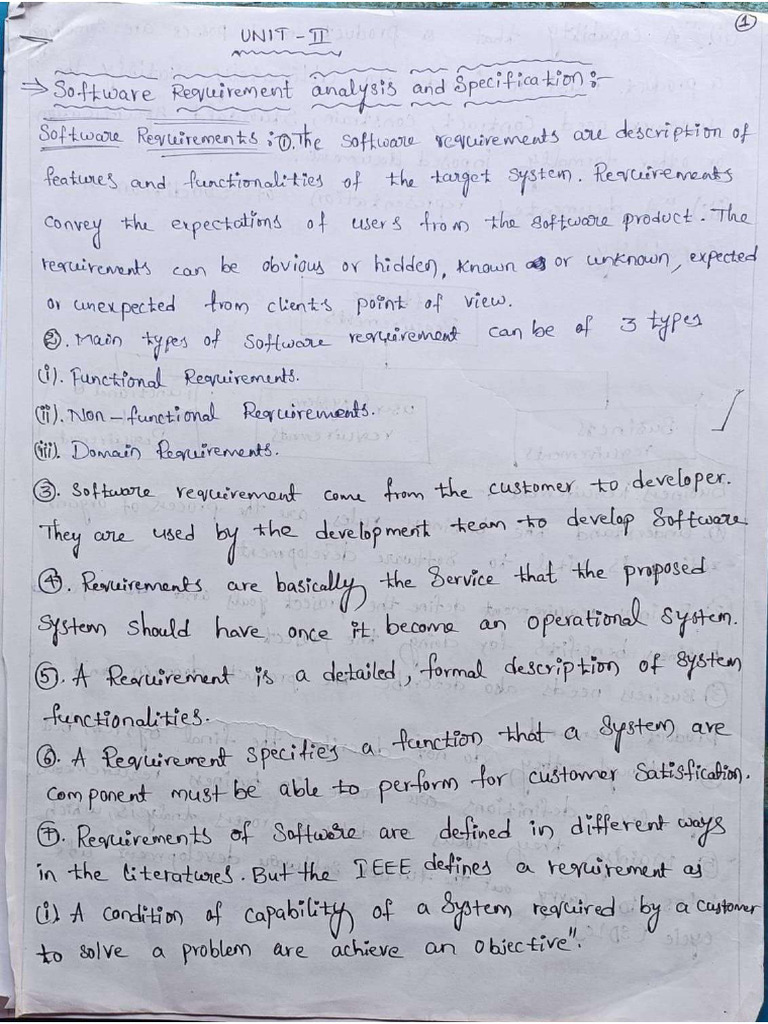 ①
UNIT - II
⇒ Software Requirement analysis and Specification :-
Software Requirements : ①. The Software requirements are description of
features and functionalities of the target system. Requirements
convey the expectations of users from the software product. The
requirements can be obvious or hidden, known or unknown, expected
or unexpected from clients point of view.
②. Main types of Software requirement can be of 3 types
(i). Functional Requirements.
(ii). Non-functional Requirements.
(iii). Domain Requirements.
③. Software requirement come from the customer to developer.
They are used by the development team to develop Software.
④. Requirements are basically the Service that the proposed
System should have once it become an operational System.
⑤. A Requirement is a detailed, formal description of System
functionalities.
⑥. A Requirement specifies a function that a System are
component must be able to perform for customer Satisfication.
⑦. Requirements of Software are defined in different ways
in the literatures. But the IEEE defines a requirement as
(i) A condition of capability of a System required by a customer
to solve a problem are achieve an objective".